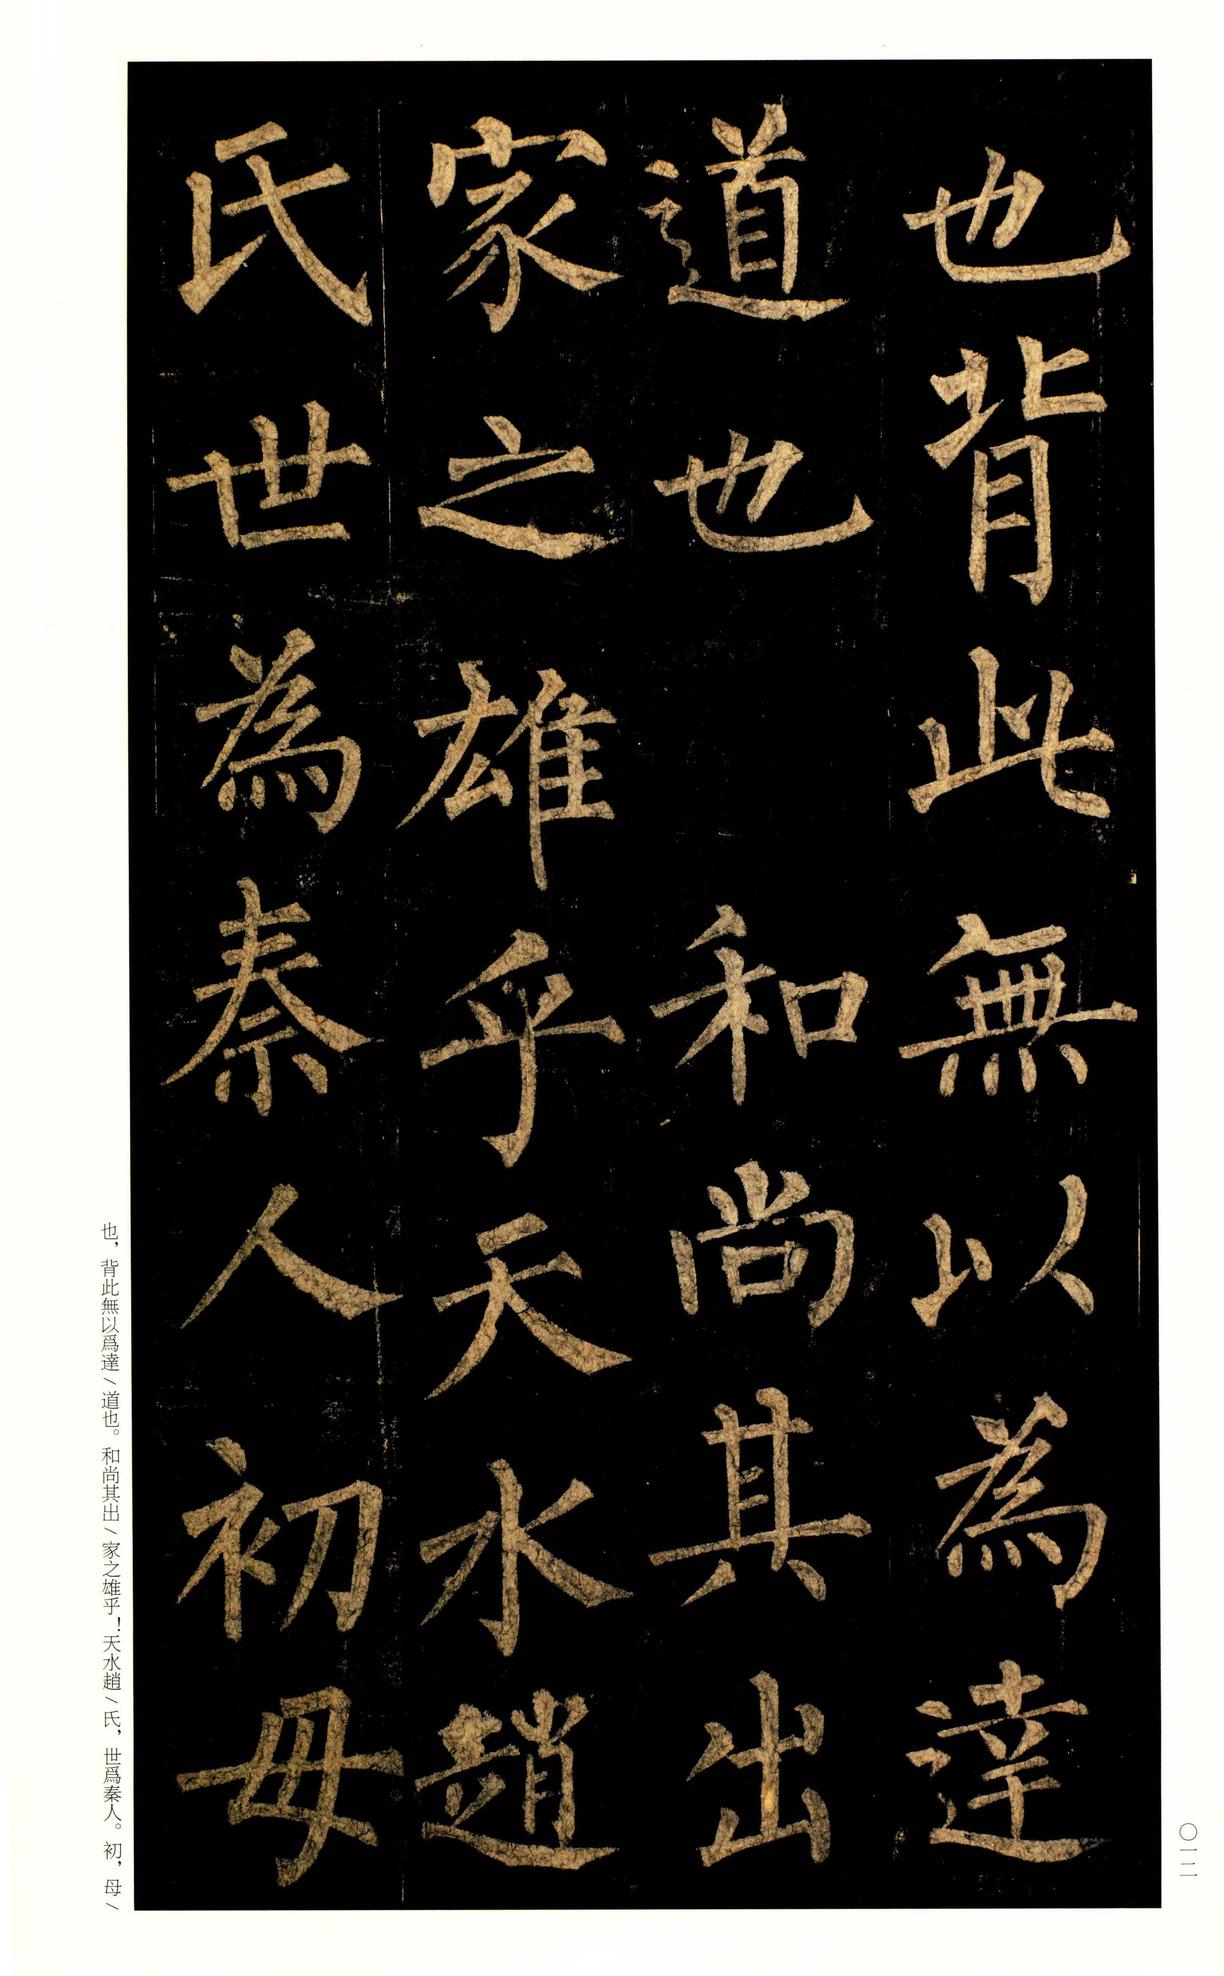 也背此無以為達
道也和尚其出
家之雄乎天水趙
氏世為秦人初母
也，背此無以爲達/道也。和尚其出/家之雄乎！天水趙/氏，世爲秦人。初，母/
〇一二